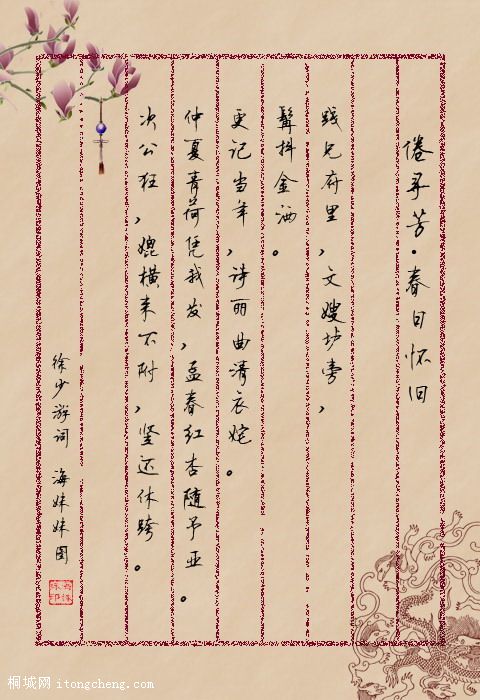 倦寻芳·春日怀旧
钱兄府里,文嫂垆旁,
鬓抖金洒。
更记当年,诗丽曲清衣姹。
仲夏青荷凭我发,孟春红杏随予亚。
次公狂,媲横来不附,竖还休跨。
徐少游词 海妹妹图
桐城网 itongcheng.com